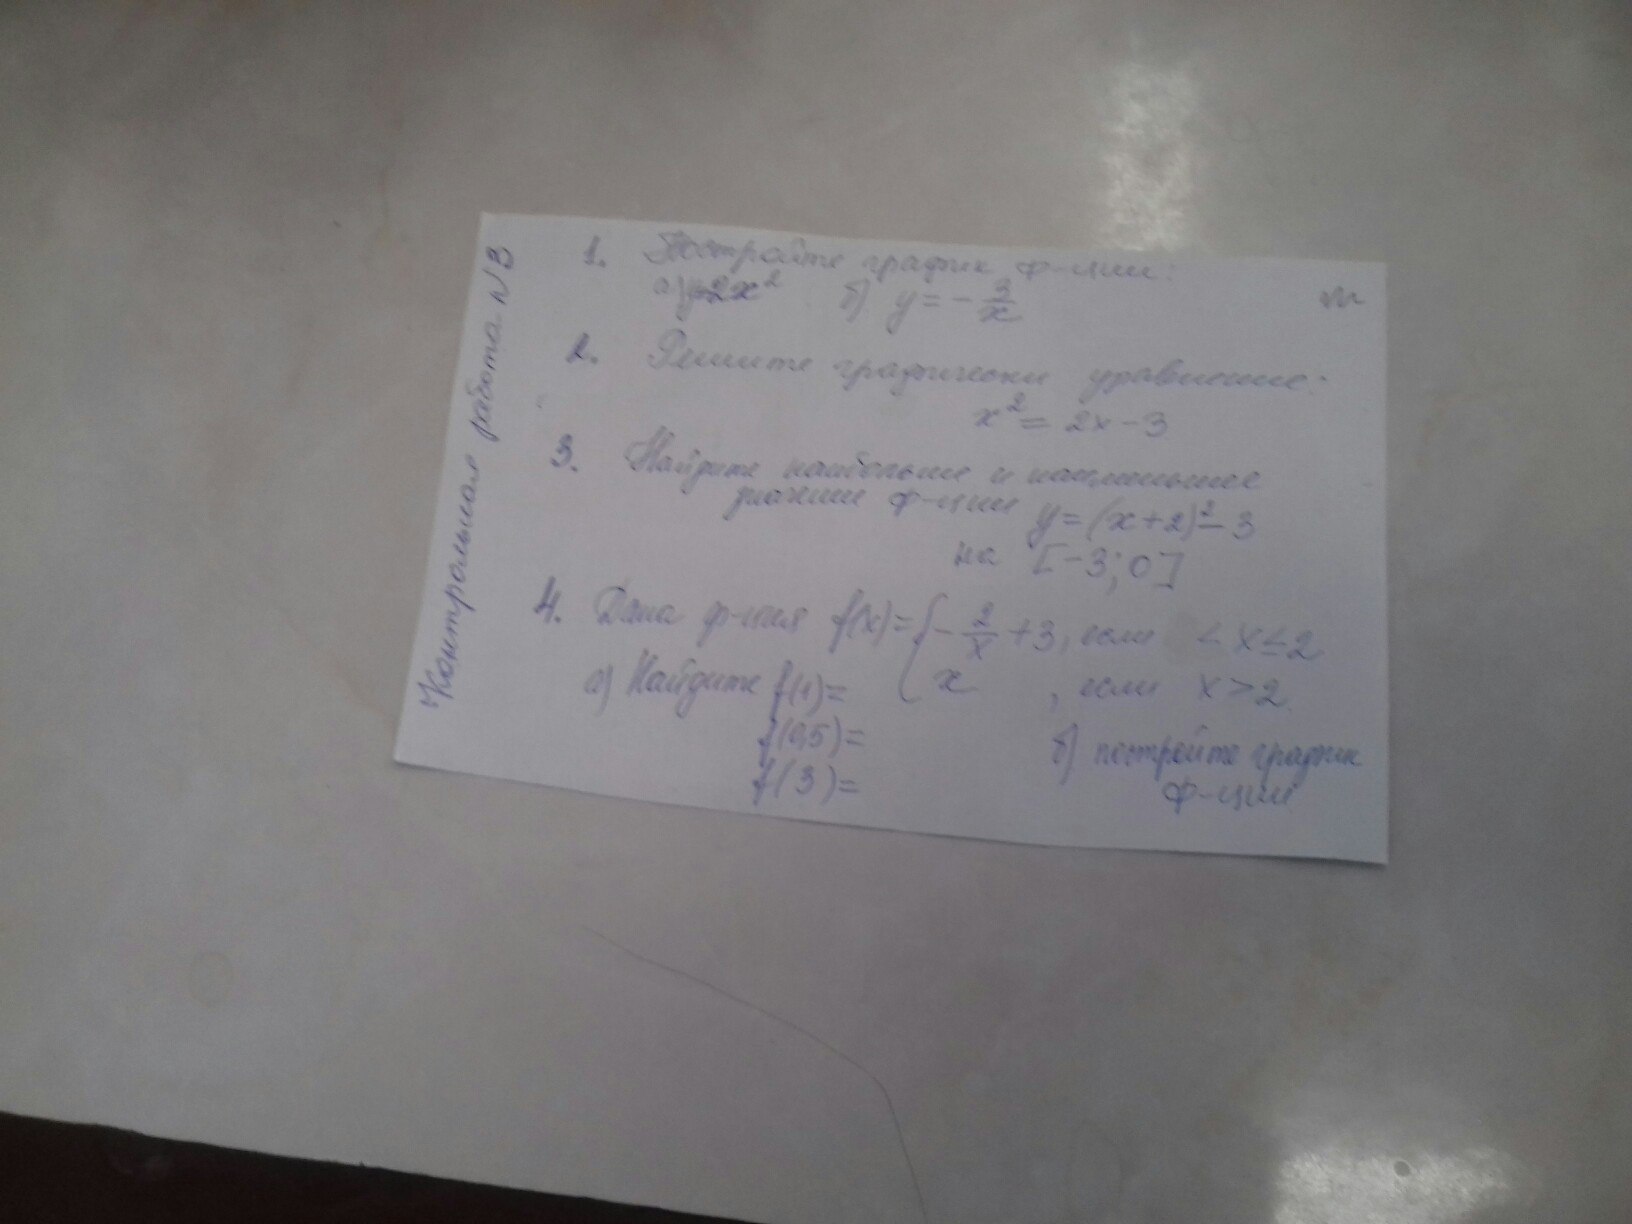 Контрольная работа N3
1. Постройте график ф-ции:
а) y=2x² б) y = - 3/x
2. Решите графически уравнение:
x² = 2x - 3
3. Найдите наибольшее и наименьшее
значение ф-ции y = (x+2)² - 3
на [-3; 0]
4. Дана ф-ция f(x) = { - 2/x + 3, если < x ≤ 2
а) Найдите f(1)= x , если x > 2
f(0,5)=
f(3)=
б) постройте график
ф-ции